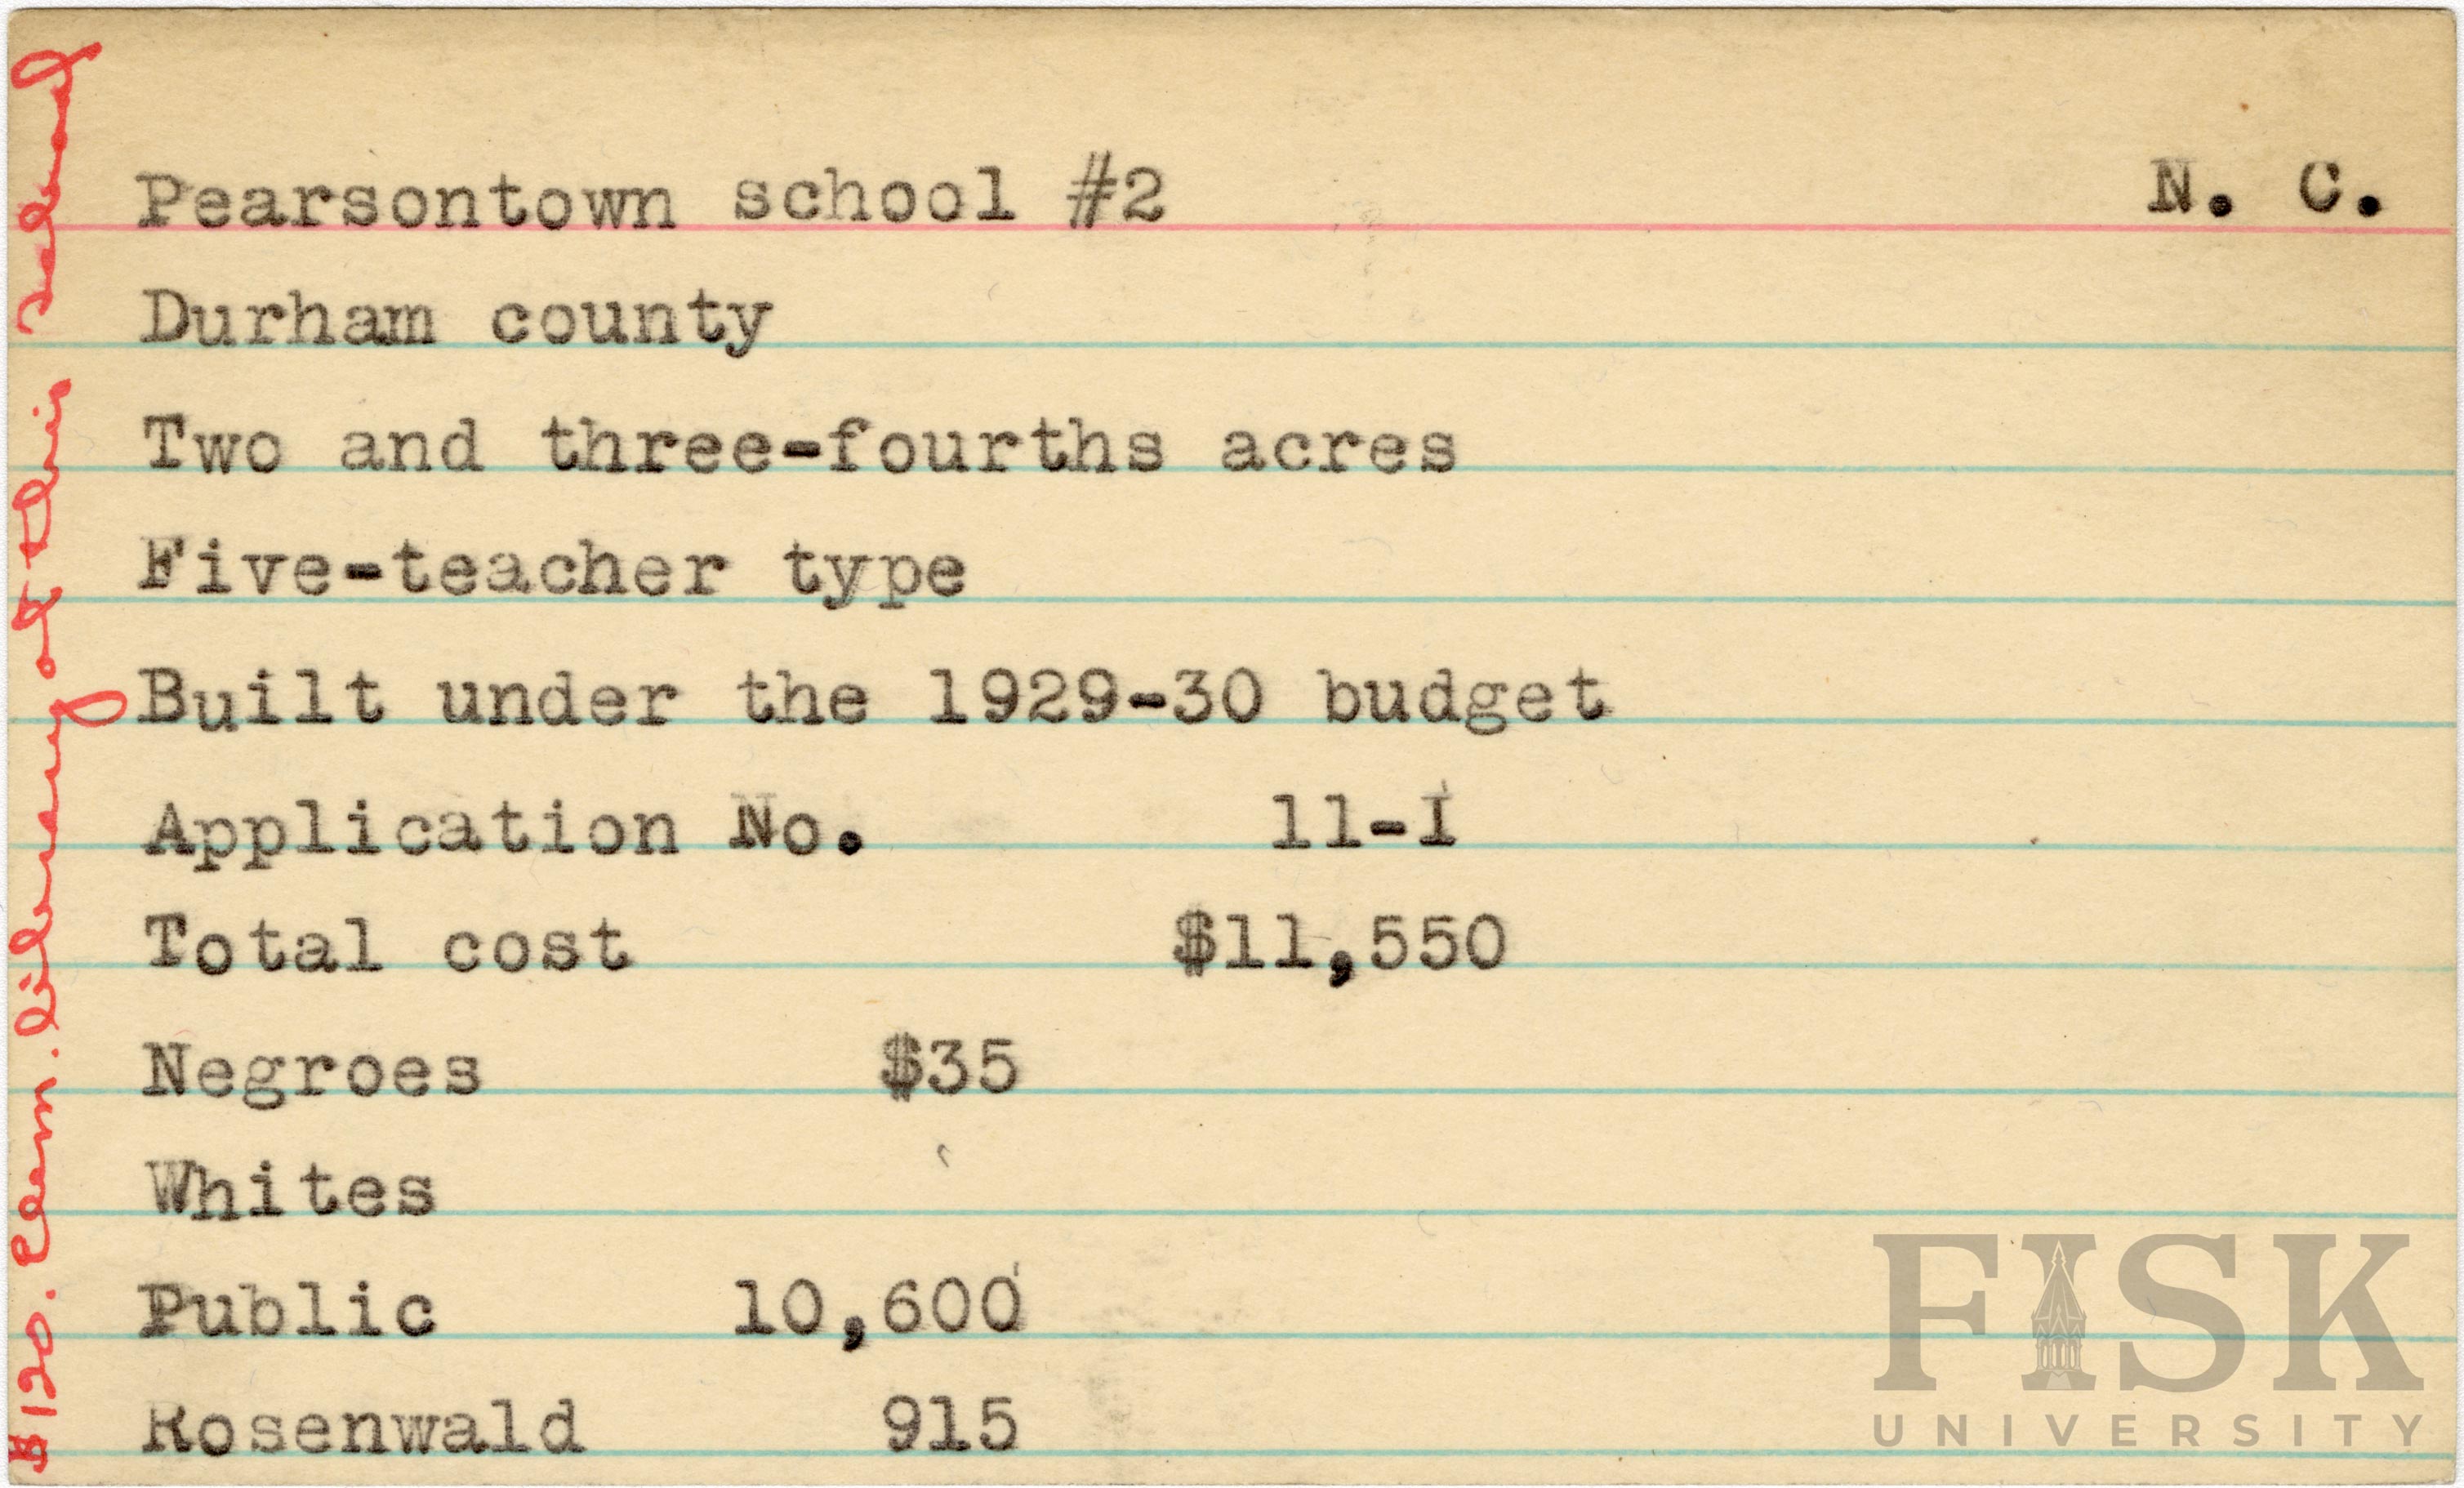 Pearsontown school #2 N. C.
Durham county
Two and three-fourths acres
Five-teacher type
Built under the 1929-30 budget
Application No. 11-I
Total cost $11,550
Negroes $35
Whites
Public 10,600
Rosenwald 915
$120. Elem. library at this school
FISK
UNIVERSITY